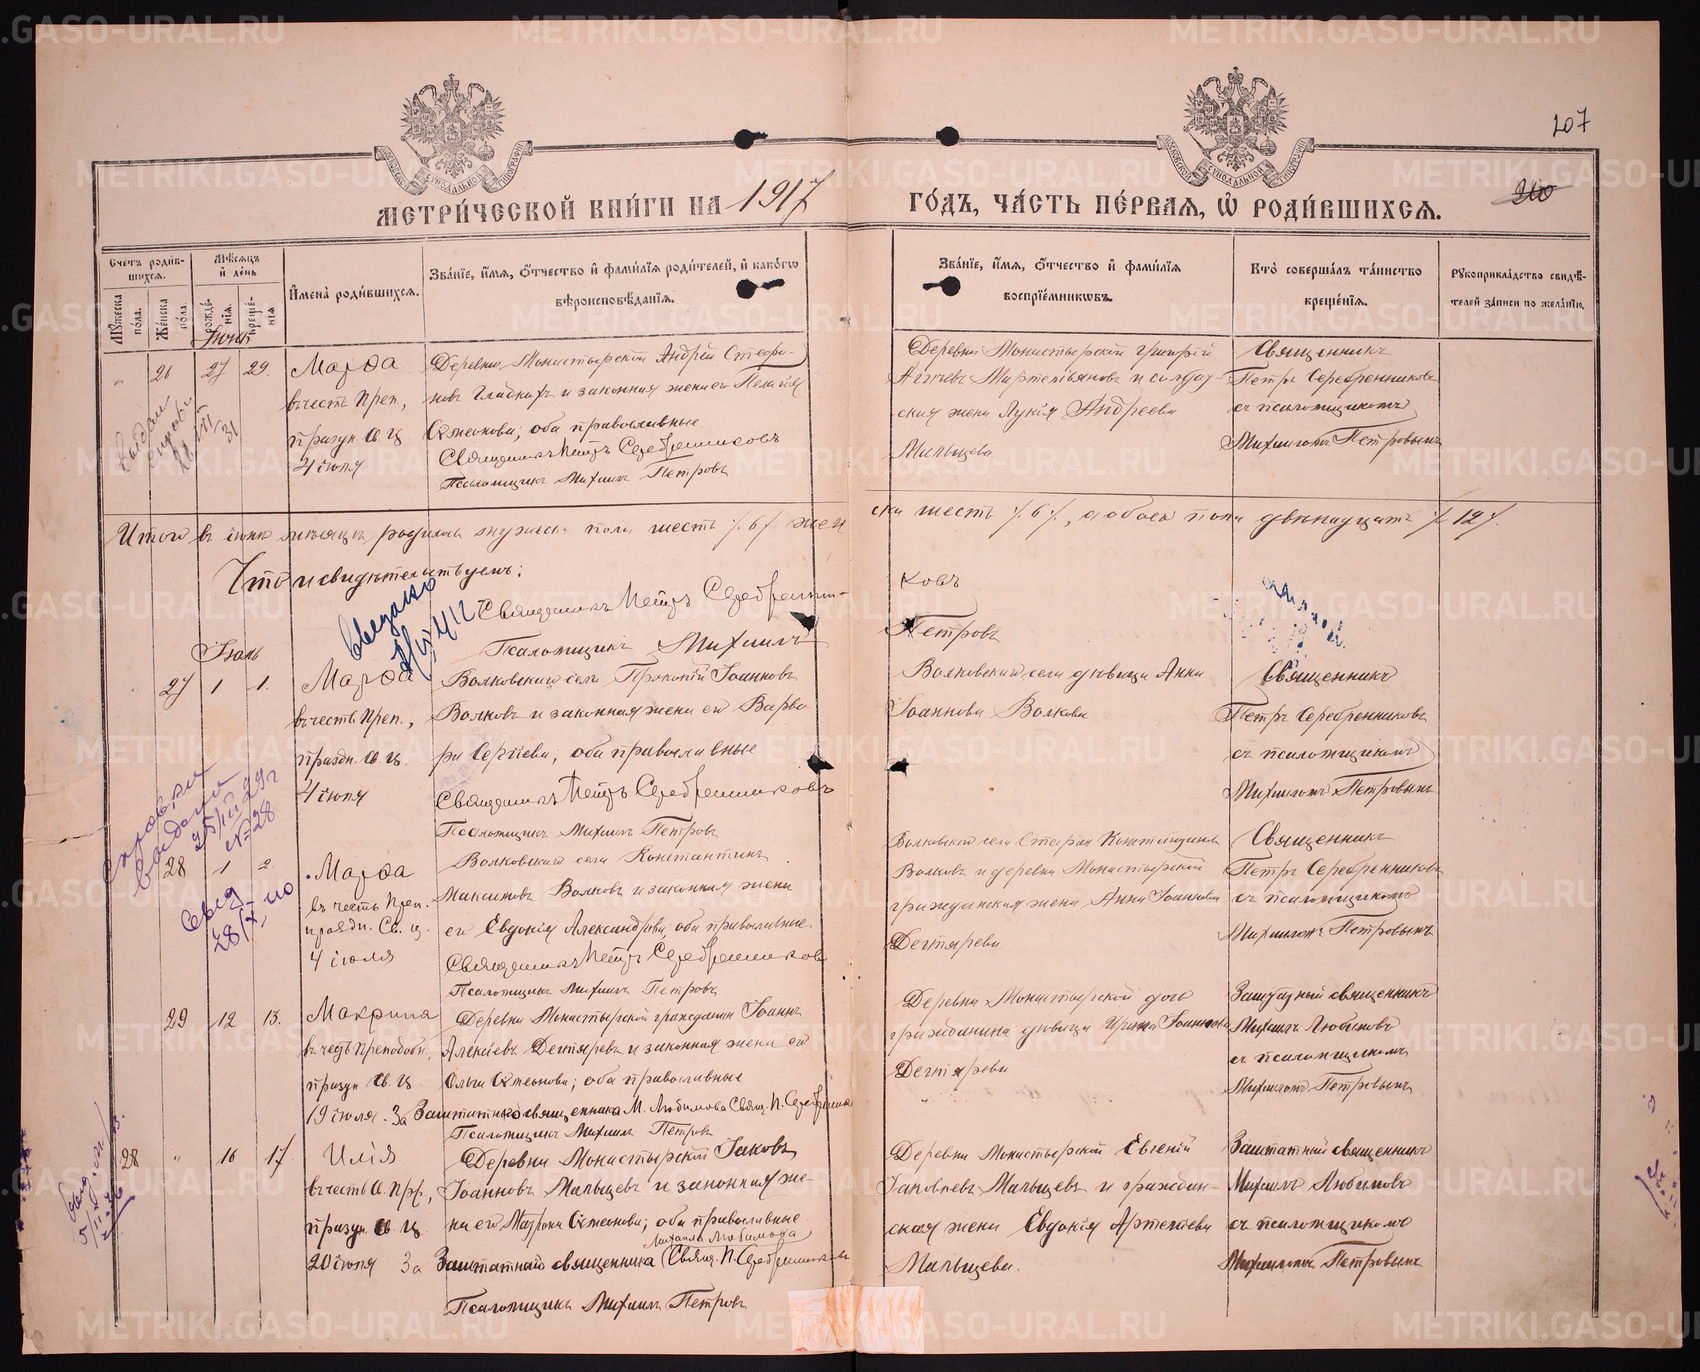 207
210
МЕТРИ́ЧЕСКОЙ КНИ́ГИ НА 1917 ГО́ДЪ, ЧА́СТЬ ПЕ́РВАЯ, Ѡ҆ РОДИ́ВШИХСЯ.
Счетъ роди́вшихся.
Мꙋ́жеска по́ла.
Же́нска по́ла.
Мѣ́сяцъ и҆ де́нь
рожде́нїя.
креще́нїя
И҆мена̀ роди́вшихся.
Зва́нїе, и҆́мя, ѻ҆́тчество и҆ фами́лїя роди́телей, и҆ како́гѡ
вѣроисповѣ́данїя.
Зва́нїе, и҆́мя, ѻ҆́тчество и҆ фами́лїя
воспрїе́мникѡвъ.
Кто̀ соверша́лъ та́инство
креще́нїя.
Рꙋкоприкла́дство свидѣ́-
телей за́писи по жела́нїю.
Іюнь
26 27 29. Марѳа
въ честь преп.,
праздн. Св. Ц.
4 іюля
Деревни Монастырской Андрей Стефа-
новъ Гладкихъ и законная жена его Пелагія
Симеонова; оба православные
Священникъ Петръ Серебренниковъ
Псаломщикъ Михаилъ Петровъ
Деревни Монастырской Григорій
Мартемьяновъ и солдат-
ская жена Лукія Андреева
Малышева
Священникъ
Петръ Серебренниковъ
съ псаломщикомъ
Михаиломъ Петровымъ
Итого въ іюнѣ мѣсяцѣ родилось мужеска пола шесть /. 6 /. жен
ска шесть /. 6 /., а обоего пола двѣнадцать /. 12 /.
Что и свидѣтельствуемъ:
Священникъ Петръ Серебренни-
ковъ
Псаломщикъ Михаилъ
Петровъ
Іюль
27 1 1. Марѳа
въ честь преп.,
праздн. Св. Ц.
4 іюля
Волковскаго села Прокопій Іоанновъ
Волковъ и законная жена его Варва-
ра Сергіева, оба православные
Священникъ Петръ Серебренниковъ
Псаломщикъ Михаилъ Петровъ
Волковскаго села дѣвица Анна
Іоаннова Волкова
Священникъ
Петръ Серебренниковъ
съ псаломщикомъ
Михаиломъ Петровымъ
28 1 2. Марѳа
въ честь преп.
праздн. Св. Ц.
4 іюля
Волковскаго села Константинъ
Максимовъ Волковъ и законная жена
его Евдокія Александрова, оба православные.
Священникъ Петръ Серебренниковъ
Псаломщикъ Михаилъ Петровъ
Волковскаго села Стефан Константиновъ
Волковъ и деревни Монастырской
гражданская жена Анна Іоаннова
Дегтярева
Священникъ
Петръ Серебренниковъ
съ псаломщикомъ
Михаиломъ Петровымъ
29 12 13. Макрина
въ честь преподобн.,
праздн. Св. Ц.
19 іюля.
Деревни Монастырской гражданин Іоаннъ
Алексіевъ Дегтяревъ и законная жена его
Ольга Симеонова; оба православные
За Заштатнаго священника М. Любимова Свящ. П. Серебренник
Псаломщикъ Михаилъ Петровъ
Деревни Монастырской дочь
гражданина дѣвица Ирина Іоаннова
Дегтярева
Заштатный священникъ
Михаилъ Любимовъ
съ псаломщикомъ
Михаиломъ Петровымъ
28 " 16 17. Илія
въ честь Св. Пр.,
праздн. Св. Ц.
20 іюля
Деревни Монастырской Іаковъ
Іоанновъ Малышевъ и законная же-
на его Матрона Симеонова; оба православные
Михаила Любимова
За Заштатнаго священника (Свящ. П. Серебренниковъ
Псаломщикъ Михаилъ Петровъ
Деревни Монастырской Евгеній
Іаковлевъ Малышевъ и граждан-
ская жена Евдокія Артемьева
Малышева.
Заштатный священникъ
Михаилъ Любимовъ
съ псаломщикомъ
Михаиломъ Петровымъ
METRIKI.GASO-URAL.RU